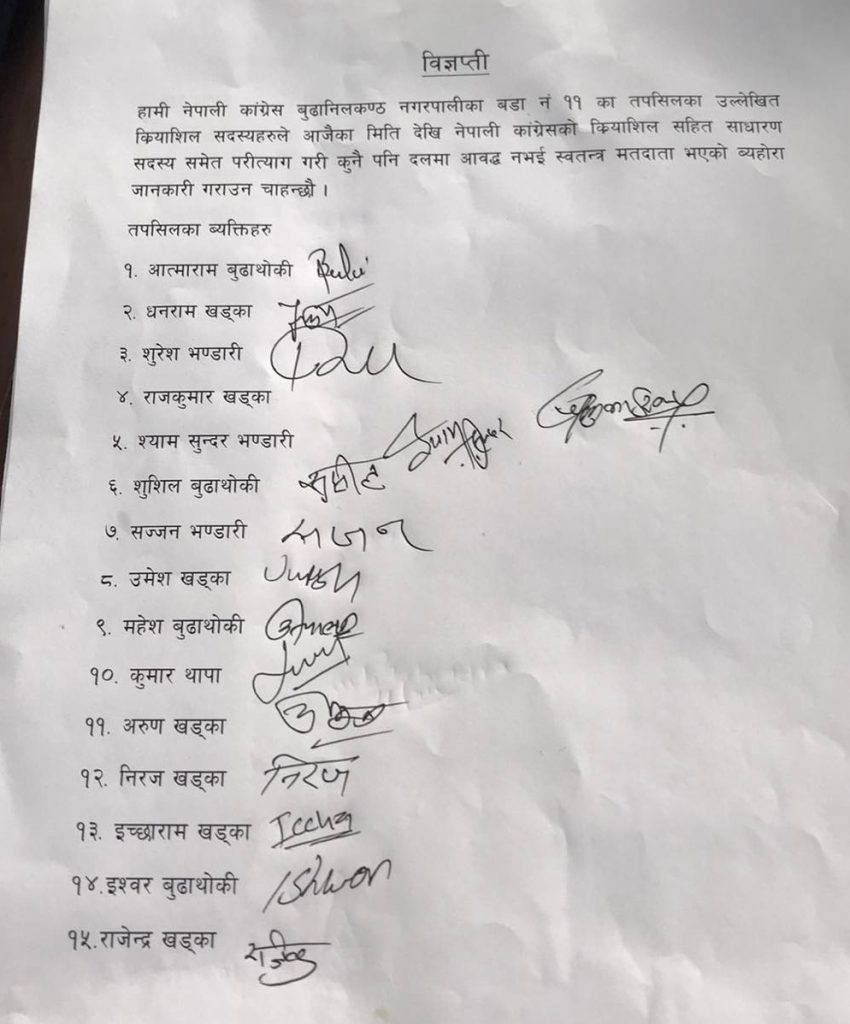 विज्ञप्ती
हामी नेपाली कांग्रेस बुढानिलकण्ठ नगरपालीका बडा नं ११ का तपसिलका उल्लेखित
कियाशिल सदस्यहरुले आजैका मिति देखि नेपाली कांग्रेसको कियाशिल सहित साधारण
सदस्य समेत परीत्याग गरी कुनै पनि दलमा आवद्ध नभई स्वतन्त्र मतदाता भएको ब्यहोरा
जानकारी गराउन चाहन्छौ ।
तपसिलका ब्यक्तिहरु
१. आत्माराम बुढाथोकी
२. धनराम खड्का
३. शुरेश भण्डारी
४. राजकुमार खड्का
५. श्याम सुन्दर भण्डारी
६. शुशिल बुढाथोकी
७. सज्जन भण्डारी सजन
८. उमेश खड्का
९. महेश बुढाथोकी
१०. कुमार थापा
११. अरुण खड्का
१२. निरज खड्का निरज
१३. इच्छाराम खड्का Iccha
१४.इश्वर बुढाथोकी Ishwor
१५.राजेन्द्र खड्का